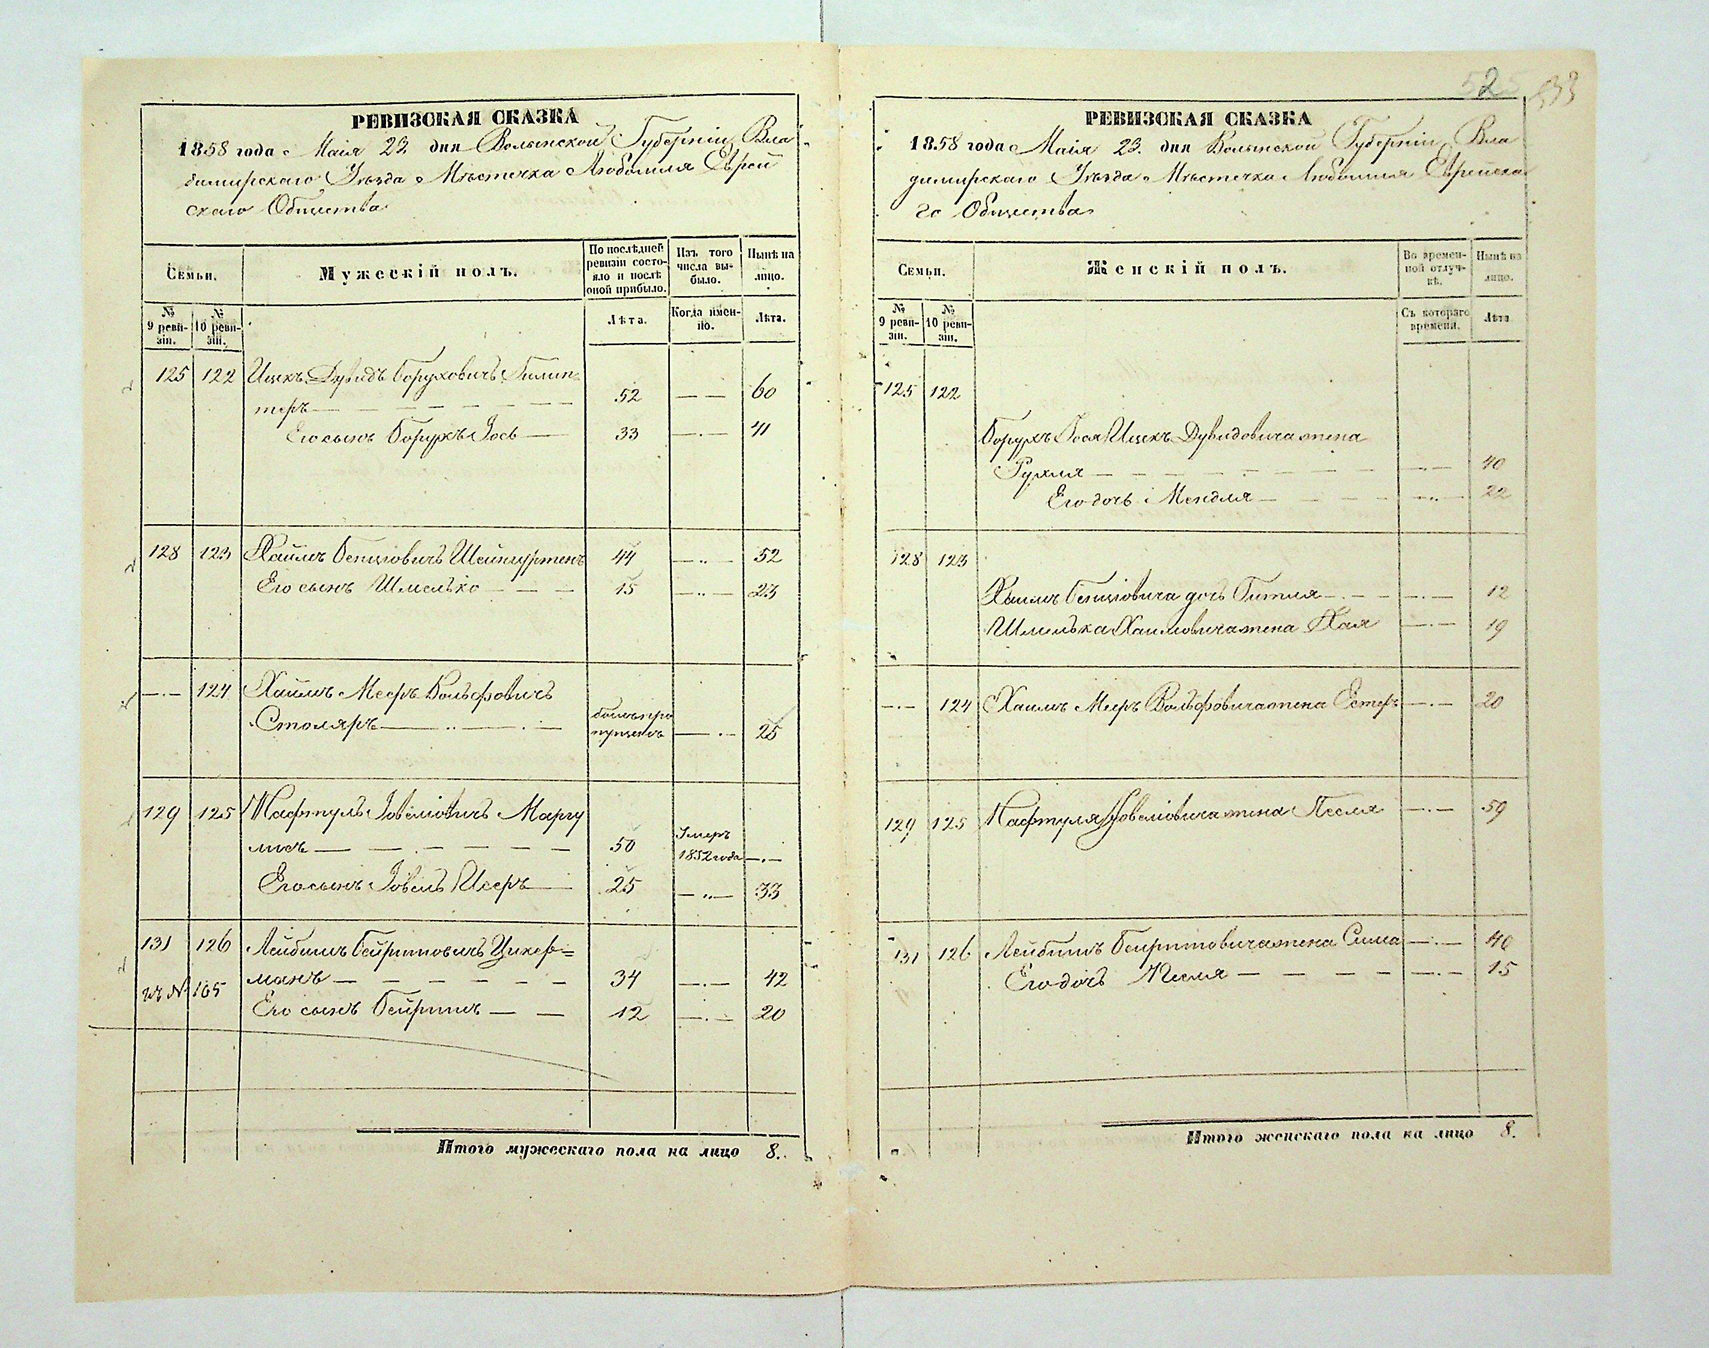 525 533
РЕВИЗСКАЯ СКАЗКА
1858 года Майя 23 дня Волынской Губерніи Вла
димирскаго Уѣзда Мѣстечка Любомля Еврей
скаго Общества
Семьи.
Мужескій полъ.
По послѣдней ревизіи состояло и послѣ оной прибыло.
Изъ того числа выбыло.
Нынѣ на лицо.
№ 9 ревизіи.
№ 10 ревизіи.
Лѣта.
Когда именно.
Лѣта.
125 122 Ицекъ Дувидъ Боруховичъ
теръ — 52 — — 60
Его сынъ Борухъ Іось — 33 — — 41
128 123 Хаимъ Бенціовичъ 44 — — 52
Его сынъ Шмелько — 15 — — 23
— 124 Хаимъ Мееръ Вольфовичъ
Столяръ — былъ пропущенъ — 25
129 125 Нафтуль Іовеліовичъ Маргу
лисъ — 50 Умеръ 1852 года —
Его сынъ Іовель Мееръ — 25 — — 33
131 126 Лейбишъ Бейришовичъ Цукер=
манъ — 34 — — 42
къ № 165
Его сынъ Бейришъ — 12 — — 20
Итого мужескаго пола на лицо 8.
РЕВИЗСКАЯ СКАЗКА
1858 года Майя 23. дня Волынской Губерніи Вла
димирскаго Уѣзда Мѣстечка Любомля Еврейска
го Общества
Семьи.
Женскій полъ.
Во временной отлучкѣ.
Нынѣ на лицо.
№ 9 ревизіи.
№ 10 ревизіи.
Съ котораго времени.
Лѣта
125 122
Борухъ Іося Ицекъ Дувидовича жена
Рухля — — 40
Его дочь Мендля — — 22
128 123
Хаимъ Бенціовича дочь Гитля — — 12
Шмелька Хаимовича жена Хая — 19
— 124 Хаимъ Меэръ Вольфовича жена Естеръ — 20
129 125 Нафтуля Іовеліовича жена Песля — 59
131 126 Лейбишъ Бейришовича жена Сима — 40
Его дочь Песля — — 15
Итого женскаго пола на лицо 8.